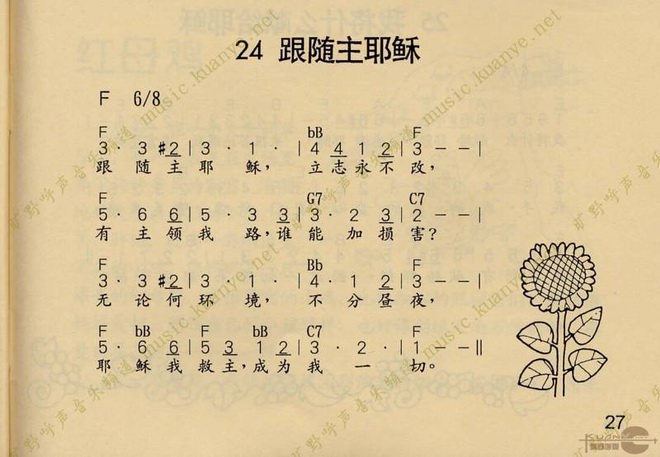 24 跟随主耶稣
F 6/8
F bB F
3· 3 #2 | 3· 1· | 4 4 1 2 | 3 - - |
跟 随 主 耶 稣， 立 志 永 不 改，
F G7 C7
5· 6 6 | 5· 3 3 | 3· 2 3 | 2 - - |
有 主 领 我 路，谁 能 加 损 害？
F Bb F
3· 3 #2 | 3· 1· | 4· 1 2 | 3 - - |
无 论 何 环 境， 不 分 昼 夜，
F bB F bB C7 F
5· 6 6 | 5 3 1 2 | 3· 2· | 1 - - ||
耶 稣 我 救 主，成 为 我 一 切。
27
旷野呼声音乐频道 music.kuanye.net
KUANYE